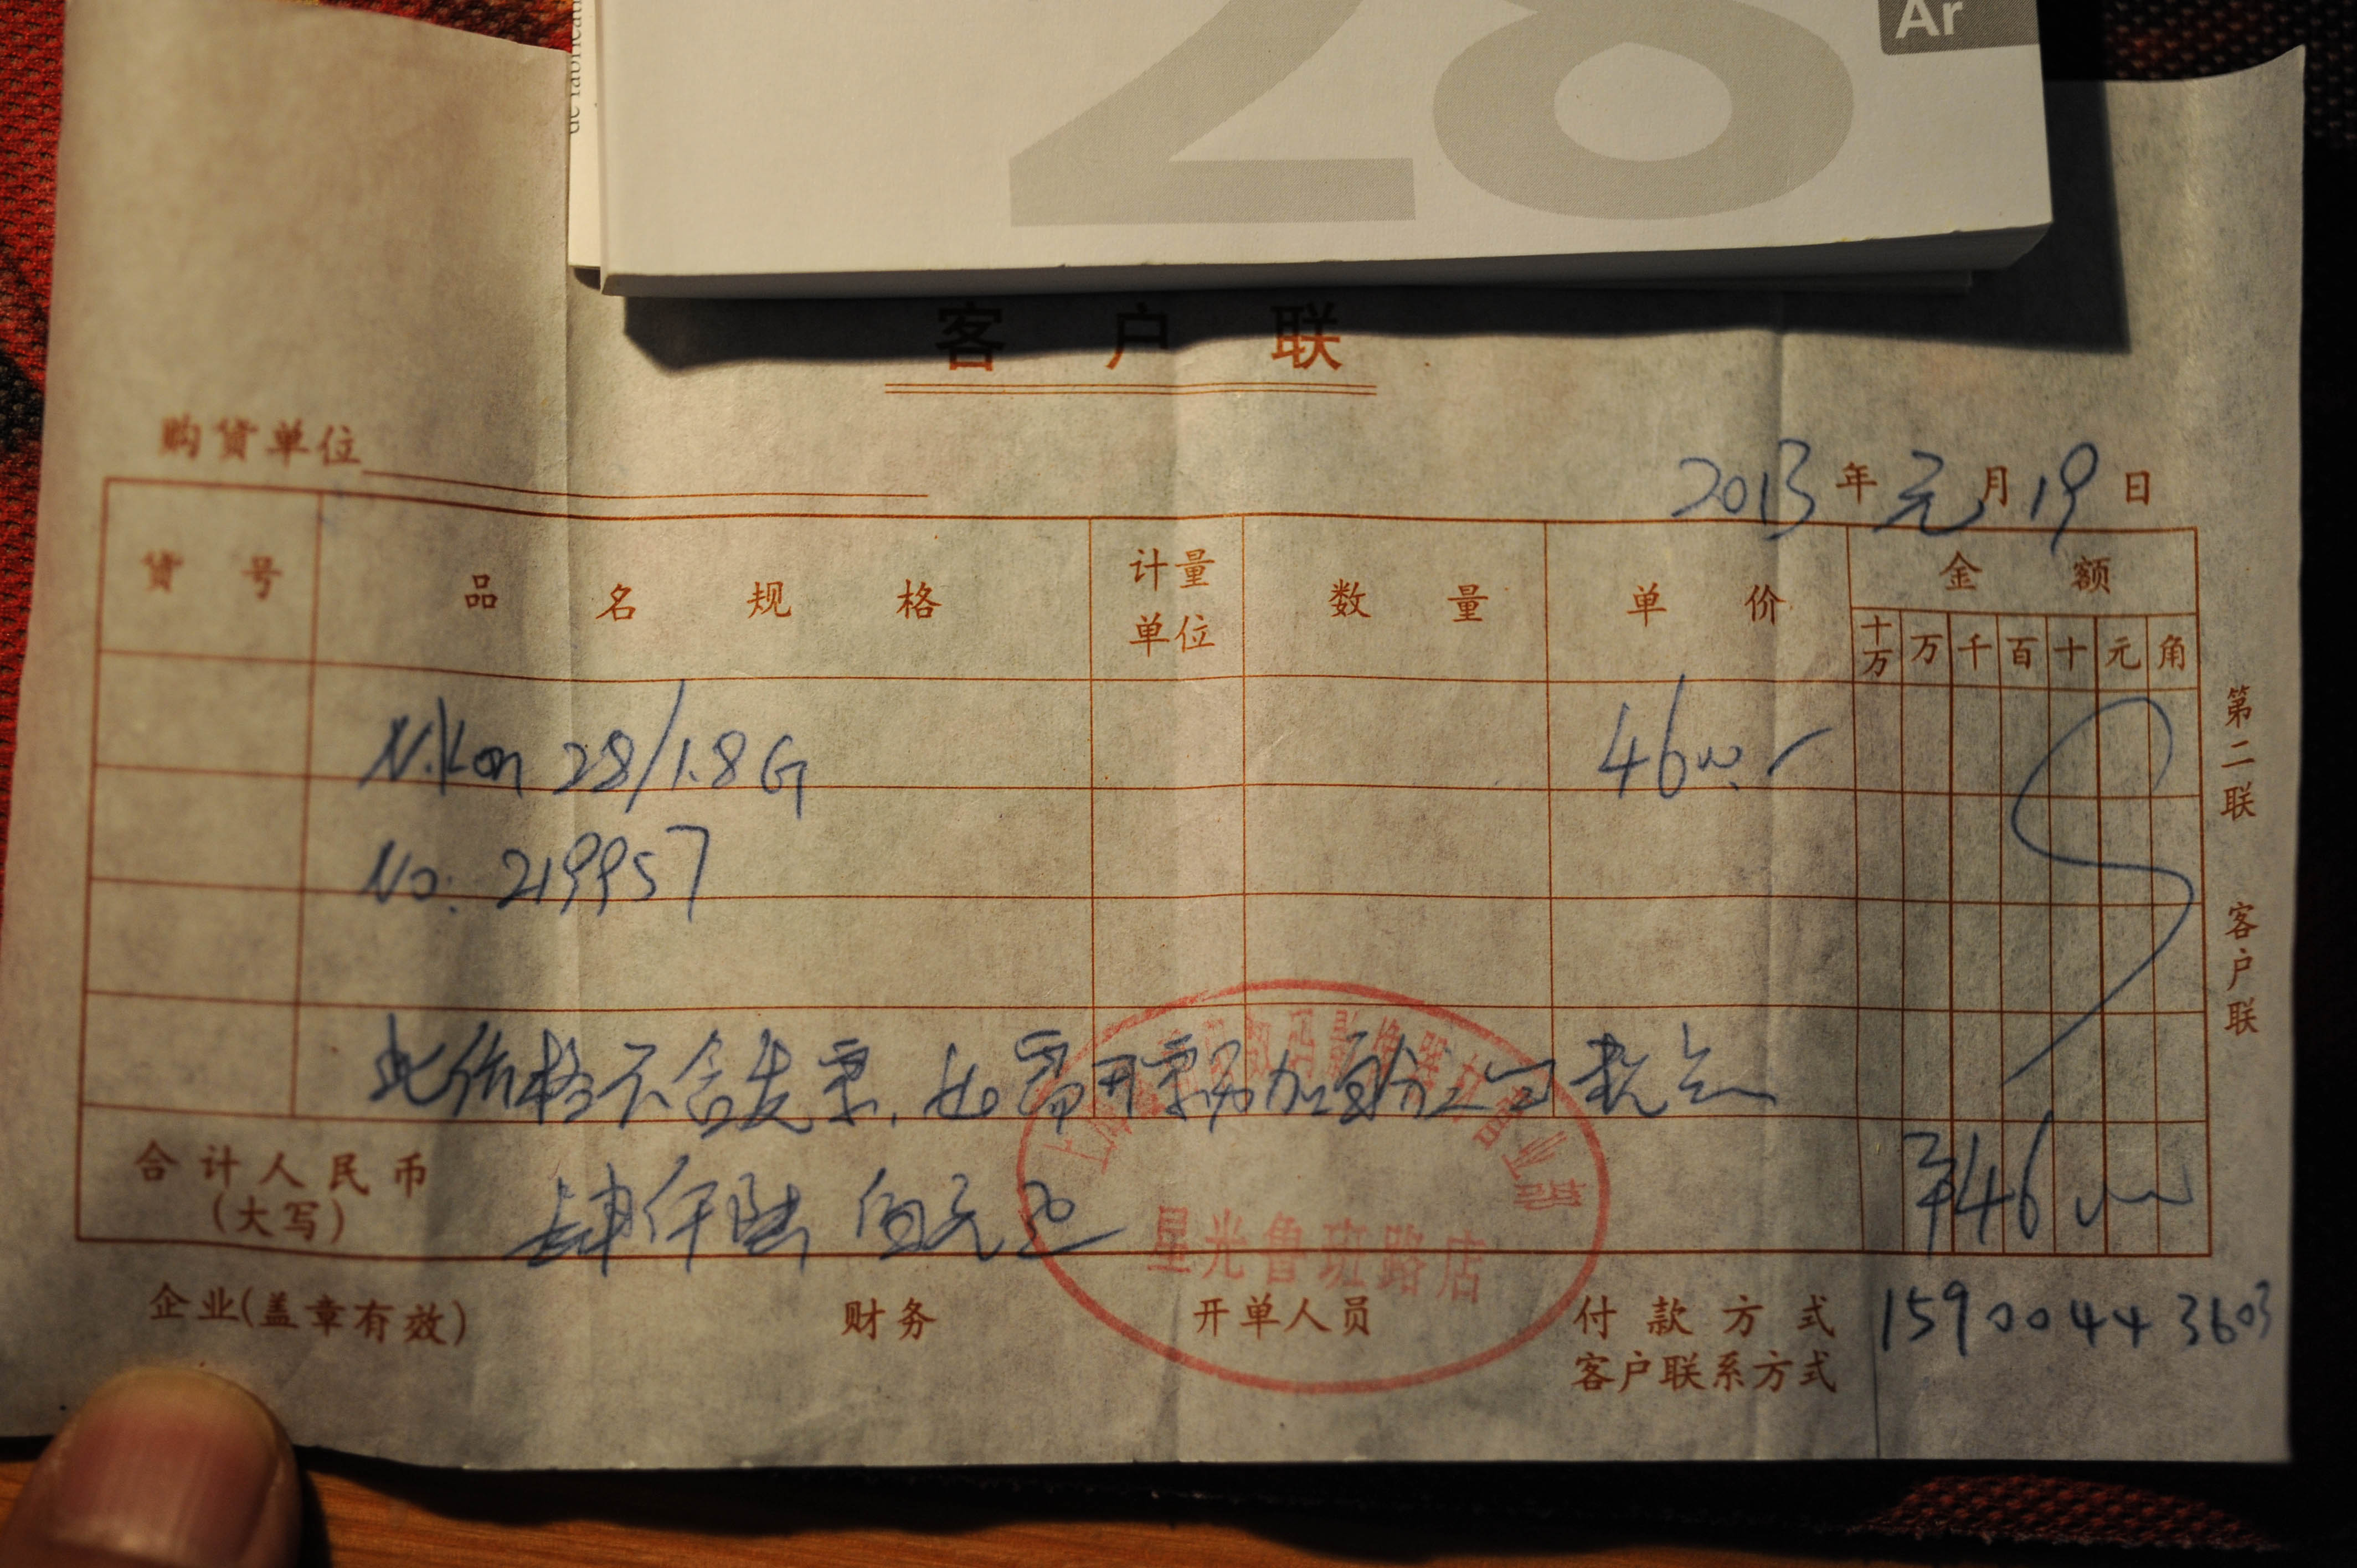 28
Ar
客户联
购货单位
2013年元月19日
货号 品名规格 计量单位 数量 单价 金额
十万 万 千 百 十 元 角
Nikon 28/1.8G 4600.-
No: 219957
此价格不含发票,如需开票另加百分之 税点
合计人民币(大写) 肆仟陆佰元正 ¥4600
星光鲁班路店
企业(盖章有效) 财务 开单人员 付款方式 15900443603
客户联系方式
第二联 客户联